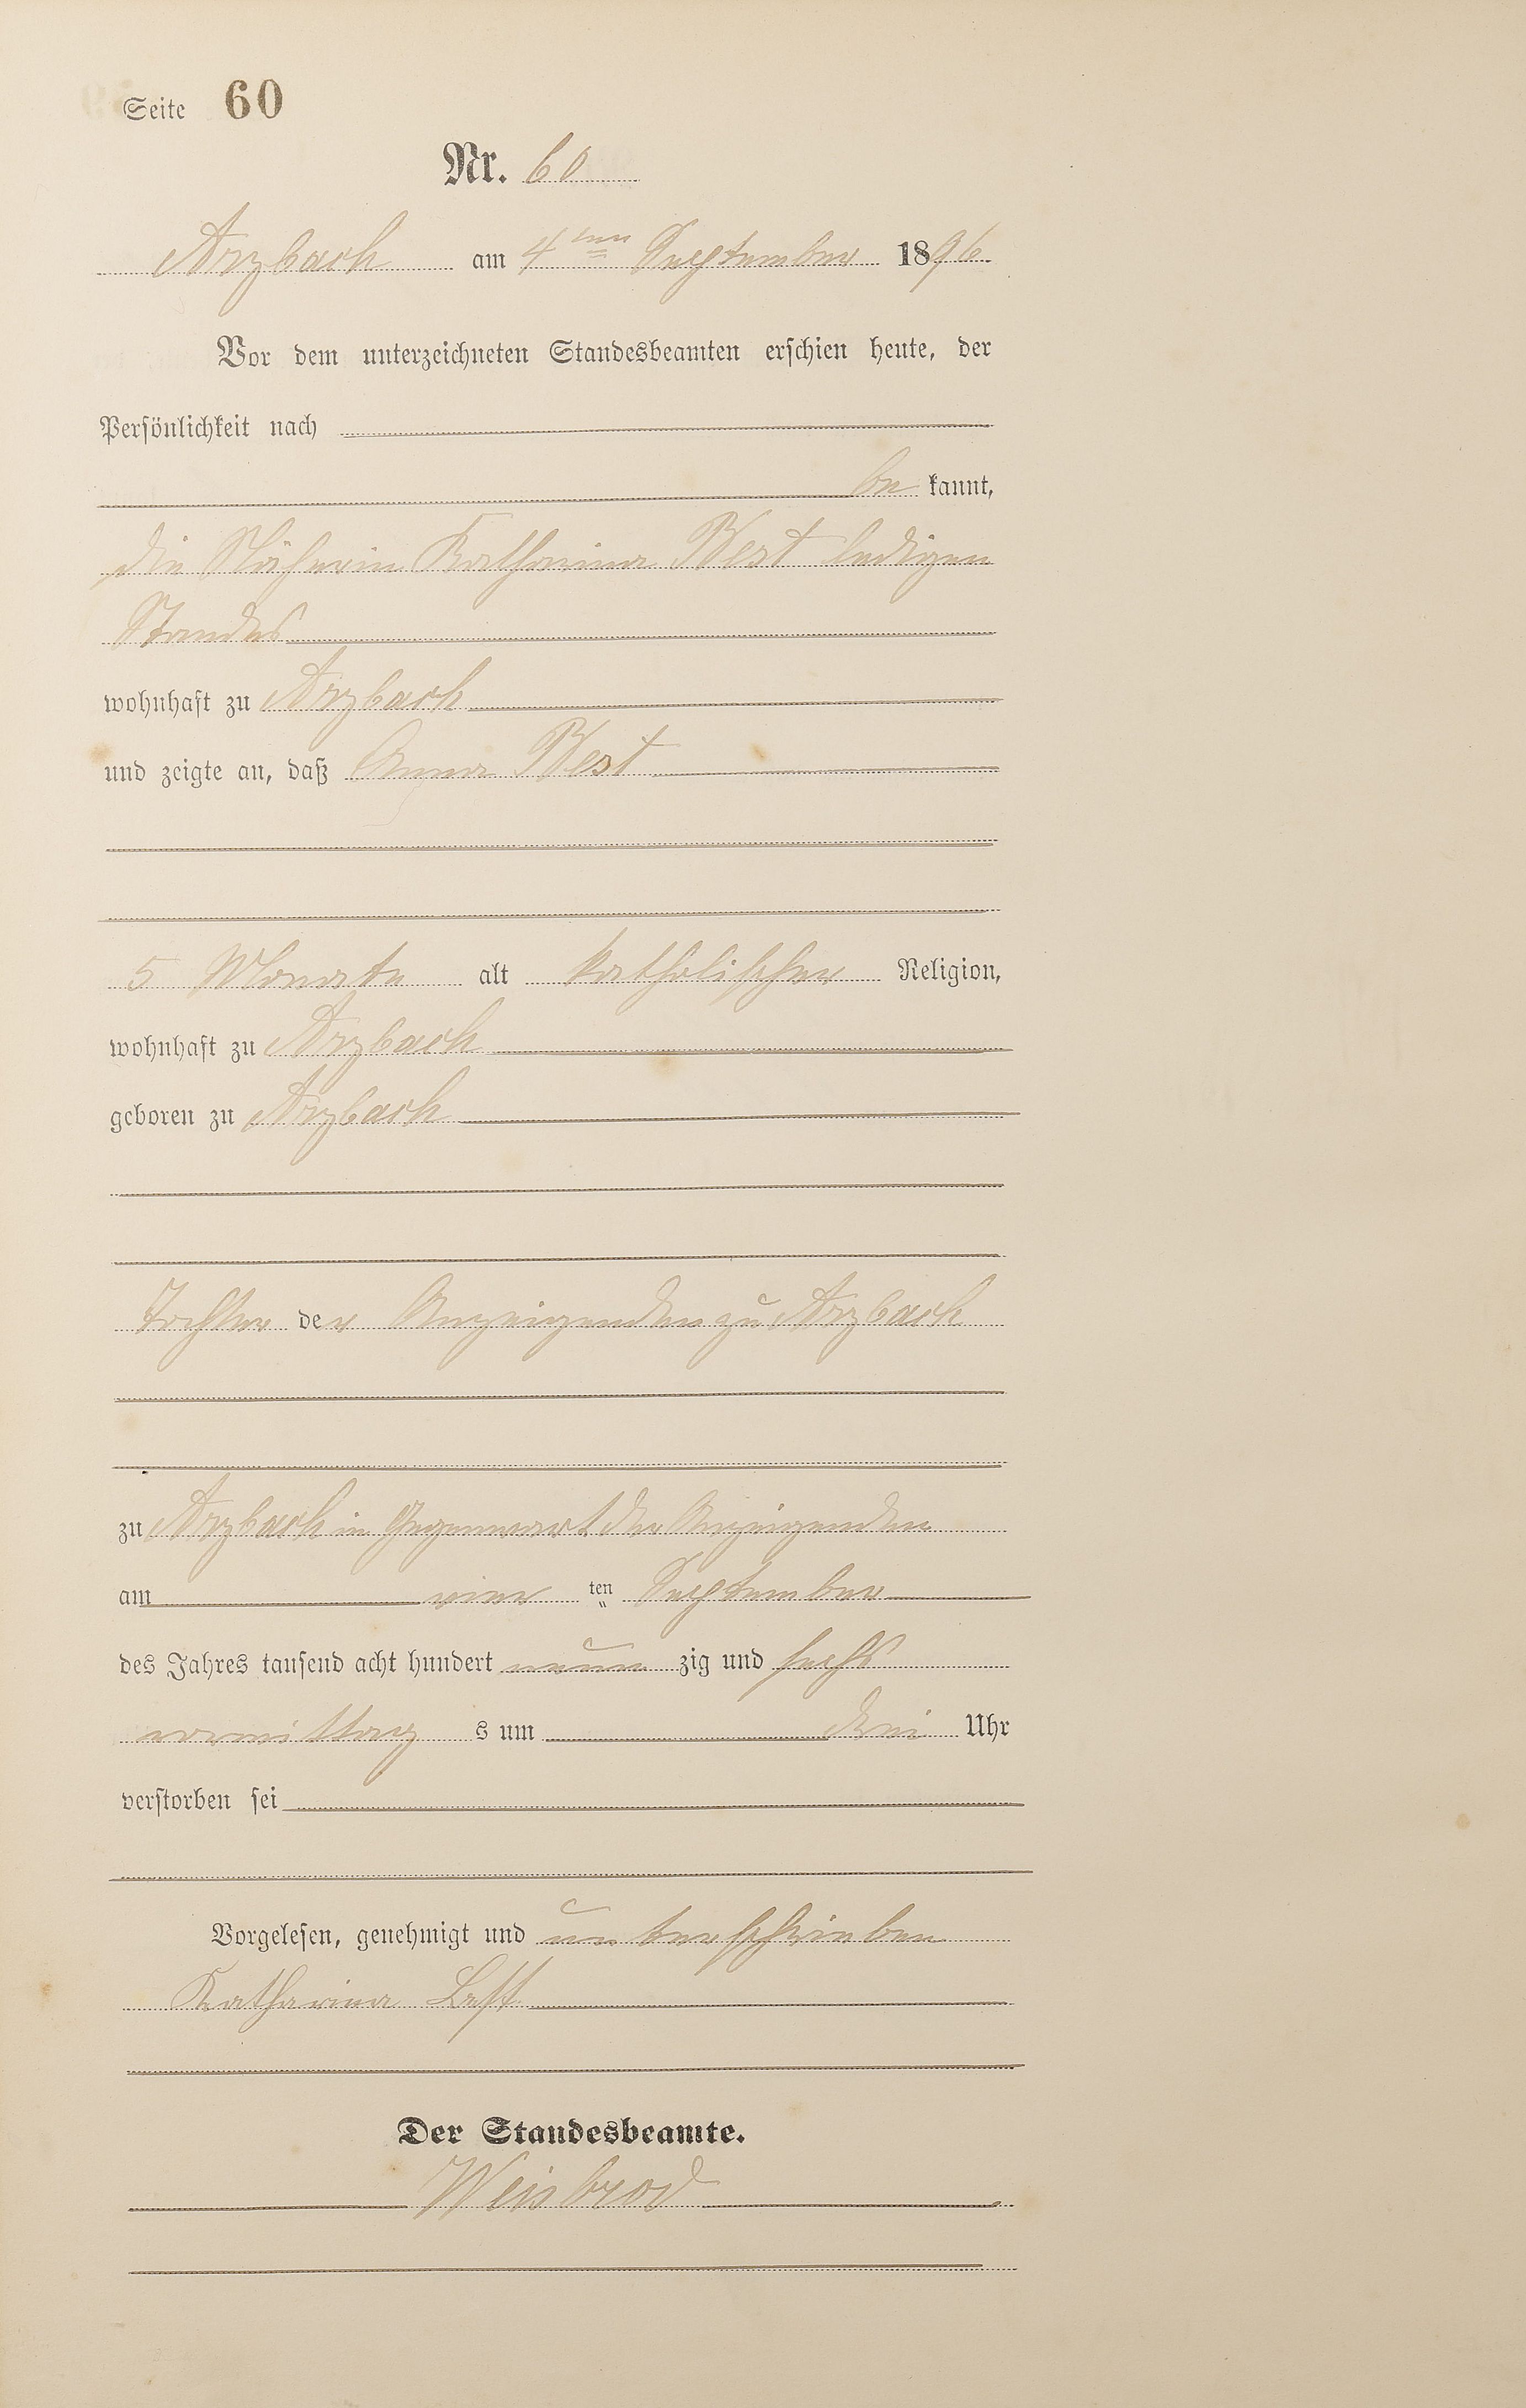 Seite 60
Nr. 60
Arzbach am 4ten September 1896.
Vor dem unterzeichneten Standesbeamten erschien heute, der
Persönlichkeit nach
be kannt,
die Näherin Katharina Best ledigen
Standes
wohnhaft zu Arzbach
und zeigte an, daß Anna Best
5 Monate alt katholischer Religion,
wohnhaft zu Arzbach
geboren zu Arzbach
Tochter der Anzeigenden zu Arzbach
zu Arzbach in Gegenwart der Anzeigenden
am vier ten September
des Jahres tausend acht hundert neun zig und sechs
vormittag s um drei Uhr
verstorben sei
Vorgelesen, genehmigt und unterschrieben
Katharina Best
Der Standesbeamte.
Weisbrod